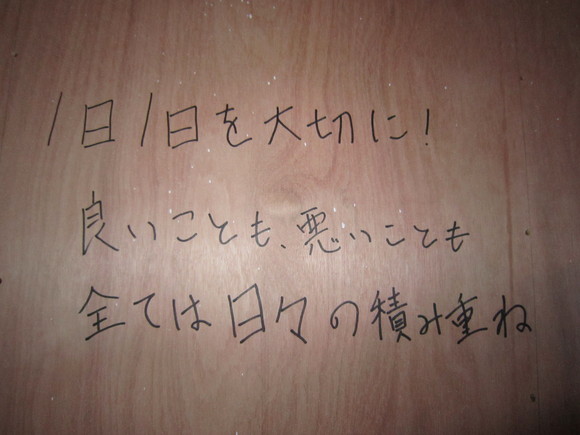 1日1日を大切に!
良いことも、悪いことも
全ては日々の積み重ね